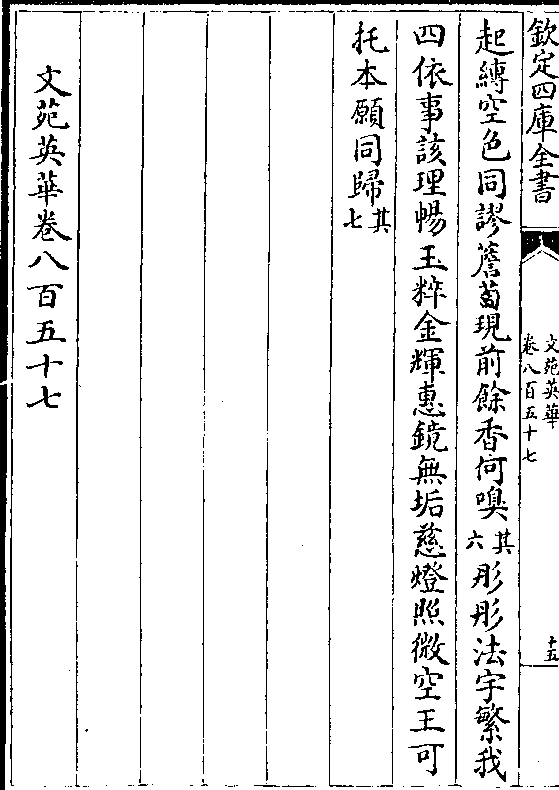 欽定四庫全書
文苑英華
卷八百五十七
十五
起縛空色同謬薝蔔現前餘香何嗅其六彤彤法宇繄我
四依事該理暢玉粹金輝惠鏡無垢慈燈照微空王可
托本願同歸其七
文苑英華卷八百五十七